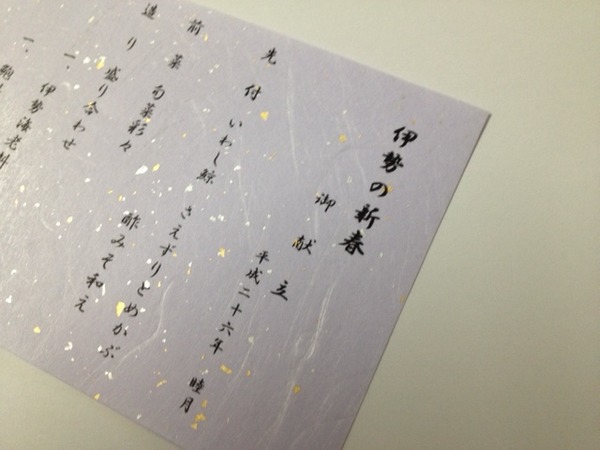 伊勢の新春
御献立
平成二十六年 睦月
先付 いわし鯨 さえずりとめかぶ
酢みそ和え
前菜 旬菜彩々
造り盛り合わせ
一、伊勢海老料
一、鮑